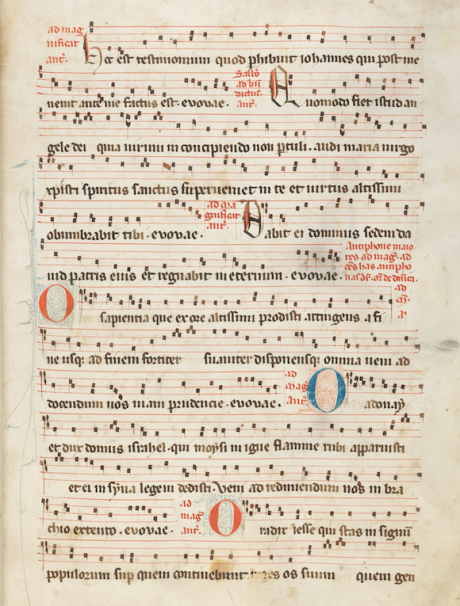 ad mag
nificat
ant.
Hoc est testimonium quod phibuit iohannes qui post me
uenit ante me factus est. evovae.
ant.
Quomodo fiet istud an
gele dei quia uirum in concipiendo non ptuli. audi maria uirgo
xpisti spiritus sanctus superueniet in te et uirtus altissimi
obumbrabit tibi. evovae.
ad ma
gnificat
ant.
Dabit ei dominus sedem da
uid patris eius et regnabit in eternum. evovae.
Antiphone maio
res ad mag.
O sapientia que ex ore altissimi prodisti attingens a fi
ne usq; ad finem fortiter suauiter disponensq; omnia ueni ad
docendum nos uiam prudencie. evovae.
ad
mag
ant.
O adonay
et dux domus israhel. qui moysi in igne flamme rubi apparuisti
et ei in syna legem dedisti. veni ad redimendum nos in bra
chio extento. evovae.
ad
mag
ant.
O radix iesse qui stas in signum
populorum sup quem continebunt reges os suum quem gen